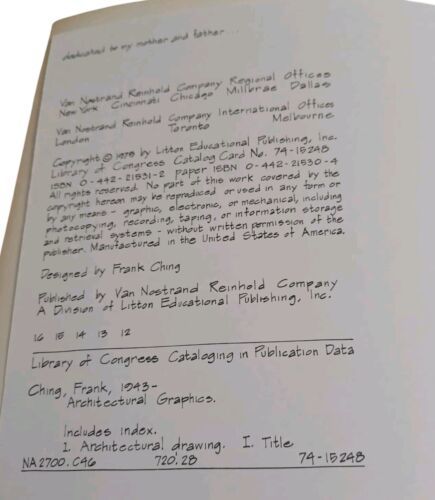 dedicated to my mother and father...
Van Nostrand Reinhold Company Regional Offices
New York Cincinnati Chicago Millbrae Dallas
Van Nostrand Reinhold Company International Offices
London Toronto Melbourne
Copyright © 1975 by Litton Educational Publishing, Inc.
Library of Congress Catalog Card No. 74-15248
ISBN 0-442-21531-2 paper ISBN 0-442-21530-4
All rights reserved. No part of this work covered by the
copyright hereon may be reproduced or used in any form or
by any means - graphic, electronic, or mechanical, including
photocopying, recording, taping, or information storage
and retrieval systems - without written permission of the
publisher. Manufactured in the United States of America.
Designed by Frank Ching
Published by Van Nostrand Reinhold Company
A Division of Litton Educational Publishing, Inc.
16 15 14 13 12
Library of Congress Cataloging in Publication Data
Ching, Frank, 1943-
Architectural Graphics.
Includes index.
1. Architectural drawing. I. Title
NA2700.C46 720'.28 74-15248